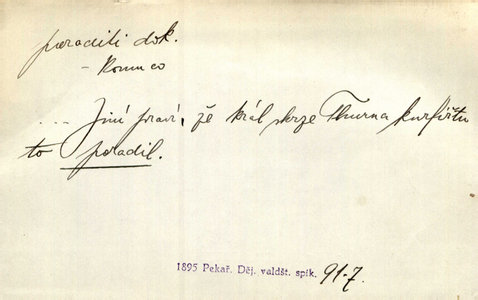 poraditi dok.
- komu co
... Jiní praví, že král skrze Thurna kurfiřtu
to poradil.
1895 Pekař. Děj. valdšt. spik. 91-7.